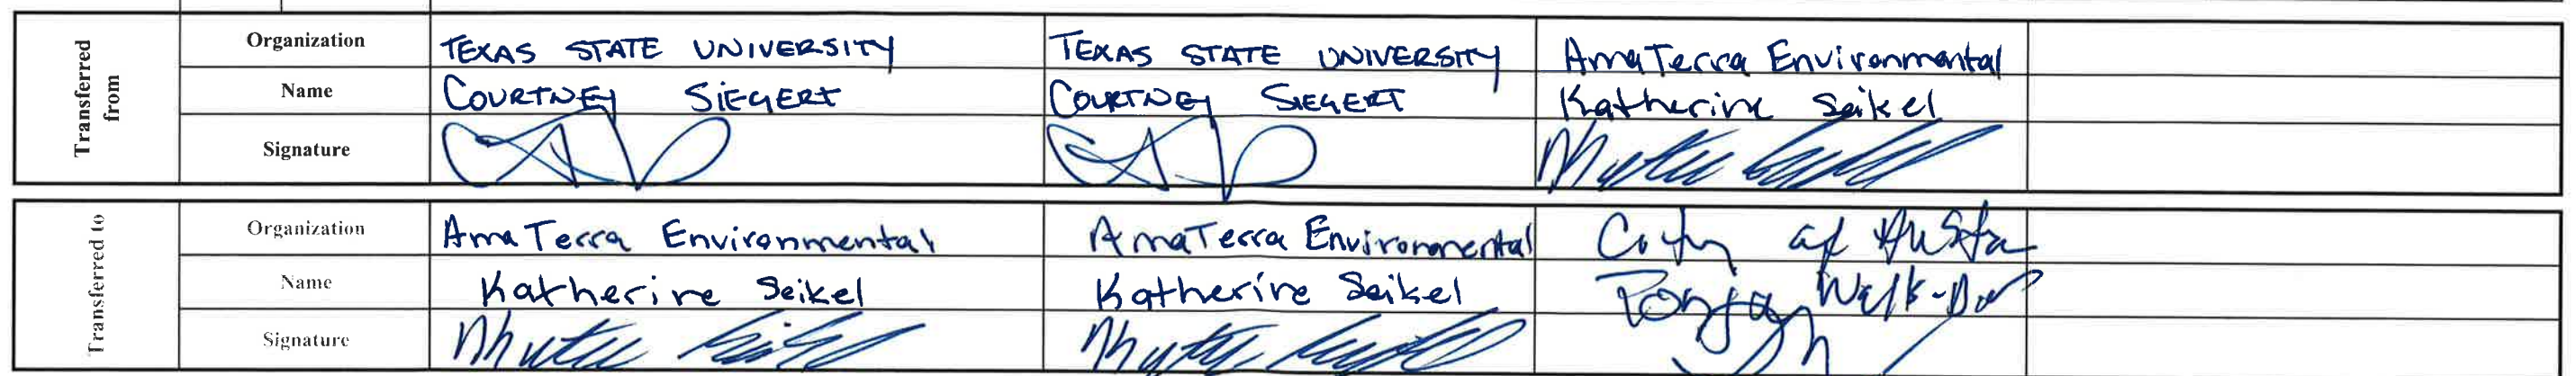 Transferred from
Organization TEXAS STATE UNIVERSITY TEXAS STATE UNIVERSITY AmaTerra Environmental
Name COURTNEY SIEGERT COURTNEY SIEGERT Katherine Seikel
Signature
Transferred to
Organization AmaTerra Environmental AmaTerra Environmental City of Austin
Name Katherine Seikel Katherine Seikel
Signature